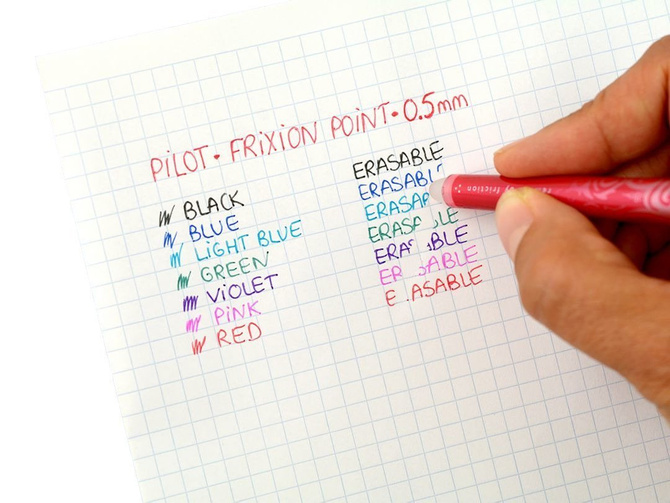 PILOT • FRiXiON POiNT • 0.5mm
BLACK
BLUE
LiGHT BLUE
GREEN
ViOLET
PiNK
RED
ERASABLE
ERASABL
ERASA
ERASA LE
ERA BLE
ER ABLE
E ASABLE
friction